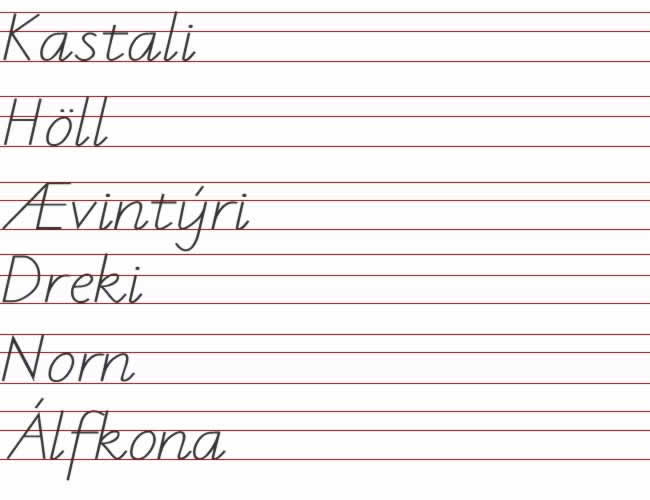 Kastali
Höll
Ævintýri
Dreki
Norn
Álfkona